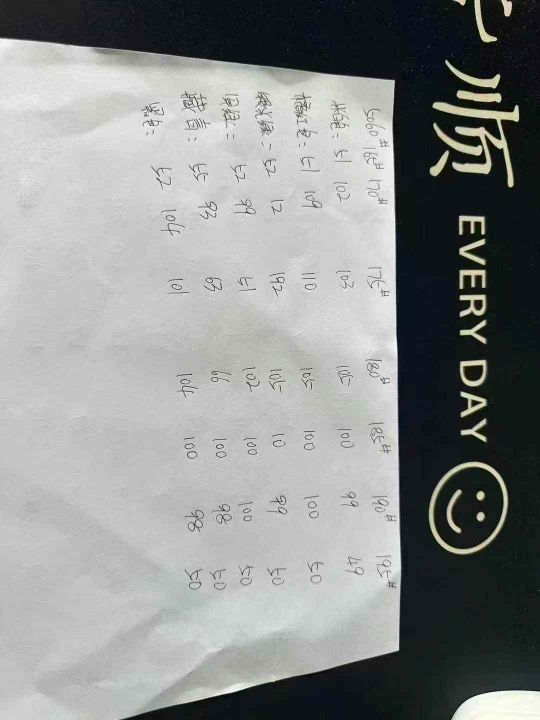 顺 EVERY DAY
5060# 165# 170# 175# 180# 185# 190# 195#
米白: 51 102 103 105 100 99 49
橘红色: 51 109 110 105 100 100 50
52 12 192 105 10 99 50
52 99 51 102 100 100 50
藏青: 55 93 63 66 100 98 50
52 104 101 104 100 98 50